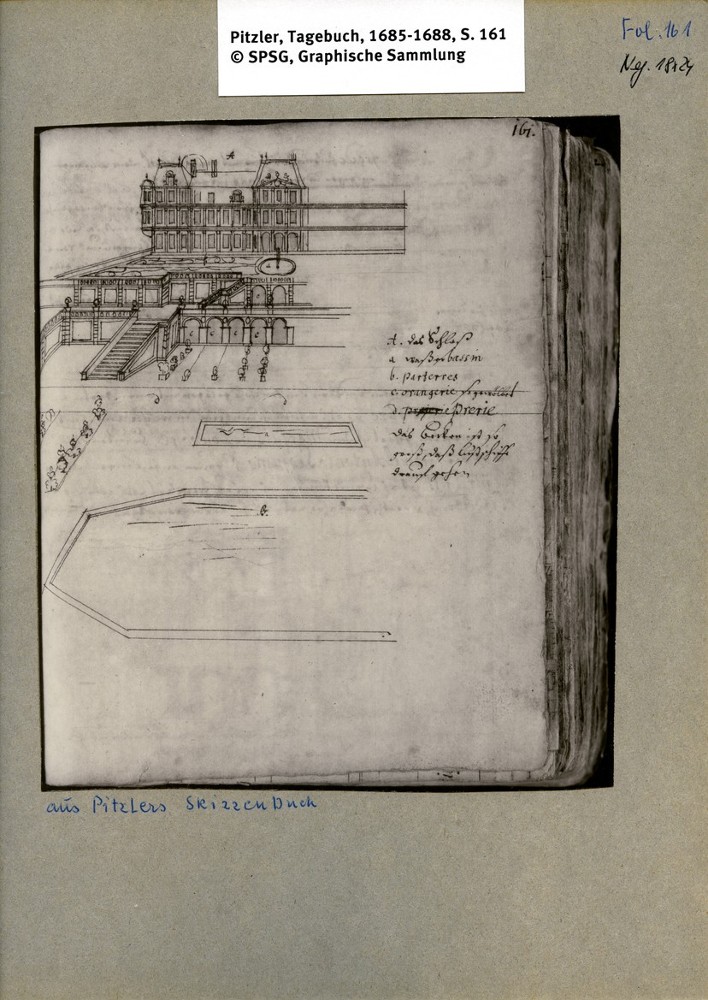 Pitzler, Tagebuch, 1685-1688, S. 161
© SPSG, Graphische Sammlung
Fol. 161
Neg. 18x24
161.
A
A. das Schloß
a waßerbassin
b. parterres
c. orangerie
d. Prerie
das Becken ist so
groß, daß lustschiffe
drauf gehen
a
b.
aus Pitzlers Skizzenbuch